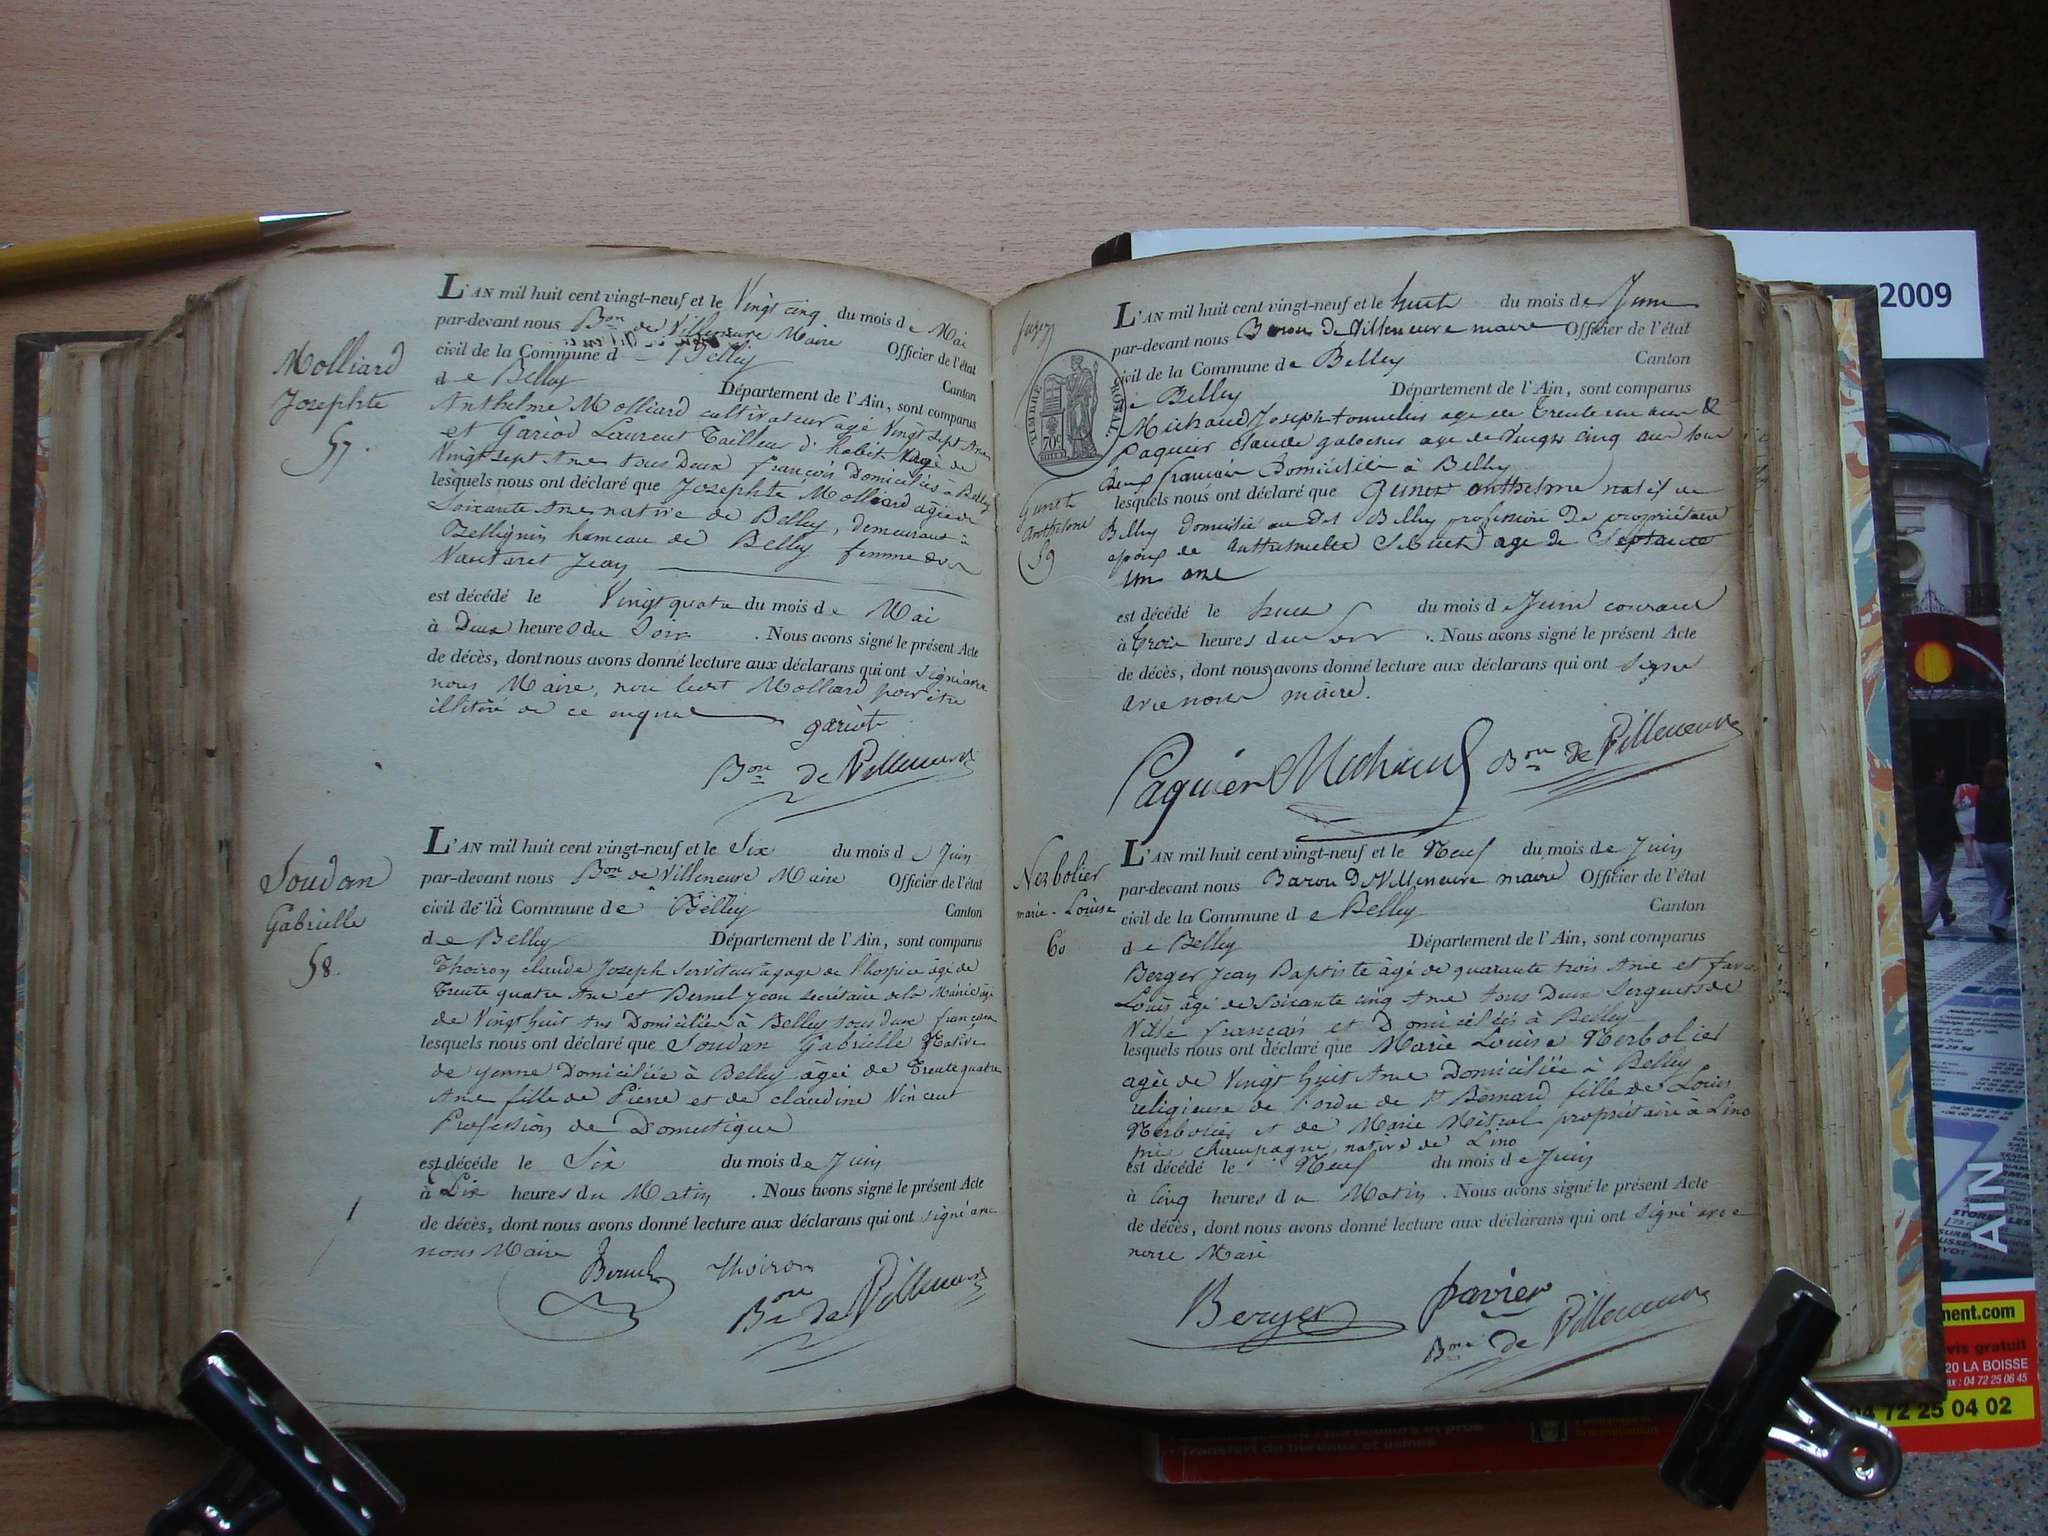 L'AN mil huit cent vingt-neuf et le Vingt cinq du mois de Mai
par-devant nous Bon de Villeneuve Maire Officier de l'état
civil de la Commune d Belley Canton
de Belley Département de l'Ain, sont comparus
Anthelme Molliard cultivateur agé Vingt Sept Ans
et Gariod Laurent Tailleur d'habit agé de
Vingt Sept Ans tous Deux françois Domiciliés à Belley
lesquels nous ont déclaré que Josephte Molliard agée de
Soixante Ans native de Belley, demeurant à
hameau de Belley femme de
Jean
est décédé le Vingt quatre du mois de Mai
à Deux heures du Soir . Nous avons signé le présent Acte
de décès, dont nous avons donné lecture aux déclarans qui ont signé avec
nous Maire, non ledit Molliard pour être
illitéré de ce enquis
gariod
Bon de Villeneuve
Molliard
Josephte
57
L'AN mil huit cent vingt-neuf et le Six du mois de Juin
par-devant nous Bon de Villeneuve Maire Officier de l'état
civil de la Commune de Belley Canton
de Belley Département de l'Ain, sont comparus
Thoiron claude Joseph Serviteur à gage de l'hospice âgé de
Trente quatre Ans et Bernel Jean secrétaire de la Mairie âgé
de Vingt huit Ans Domiciliés à Belley tous deux françois
lesquels nous ont déclaré que Soudan Gabrielle Native
de yenne Domiciliée à Belley agée de Trente quatre
Ans fille de Pierre et de claudine Vincent
Profession de Domestique
est décédé le Six du mois de Juin
à Dix heures du Matin . Nous avons signé le présent Acte
de décès, dont nous avons donné lecture aux déclarans qui ont signé avec
nous Maire
Bernel Thoiron
Bon de Villeneuve
Soudan
Gabrielle
58.
L'AN mil huit cent vingt-neuf et le huit du mois de Juin
par-devant nous Baron de Villeneuve maire Officier de l'état
civil de la Commune de Belley Canton
de Belley Département de l'Ain, sont comparus
Michaud Joseph age de Trente un ans &
Paquier Claude age de Vingt cinq ans tous
deux francais Domicilié à Belley
lesquels nous ont déclaré que anthelme natif de
Belley domicilié au Dit Belley profession De propriétaire
epoux de age de Septante
un ans
est décédé le huit du mois de Juin courant
à trois heures du soir . Nous avons signé le présent Acte
de décès, dont nous avons donné lecture aux déclarans qui ont signé
avec nous maire.
Paquier Michaud Bon de Villeneuve
TIMBRE ROYAL
70c
Anthelme
59
L'AN mil huit cent vingt-neuf et le Neuf du mois de Juin
par-devant nous Baron De Villeneuve maire Officier de l'état
civil de la Commune de Belley Canton
de Belley Département de l'Ain, sont comparus
Berger Jean Baptiste âgé de quarante trois Ans et
Louis âgé de Soixante cinq Ans tous Deux Sergents de
Ville français et Domiciliés à Belley
lesquels nous ont déclaré que Marie Louise Nerbolier
agée de Vingt huit Ans Domiciliée à Belley
religieuse de l'ordre de St Bernard fille de Louis
Nerbolier et de Marie Mistral propriétaire à Lino
pré champagne, native de Lino
est décédé le Neuf du mois de Juin
à Cinq heures du Matin . Nous avons signé le présent Acte
de décès, dont nous avons donné lecture aux déclarans qui ont signé avec
nous
Berger favier
Bon de Villeneuve
Nerbolier
marie-Louise
60
2009
AIN
ment.com
vis gratuit
20 LA BOISSE
04 72 25 06 45
04 72 25 04 02